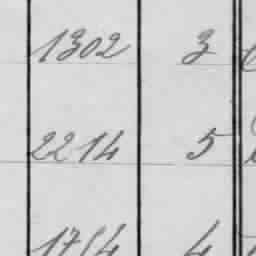 1302 3
2214 5
4